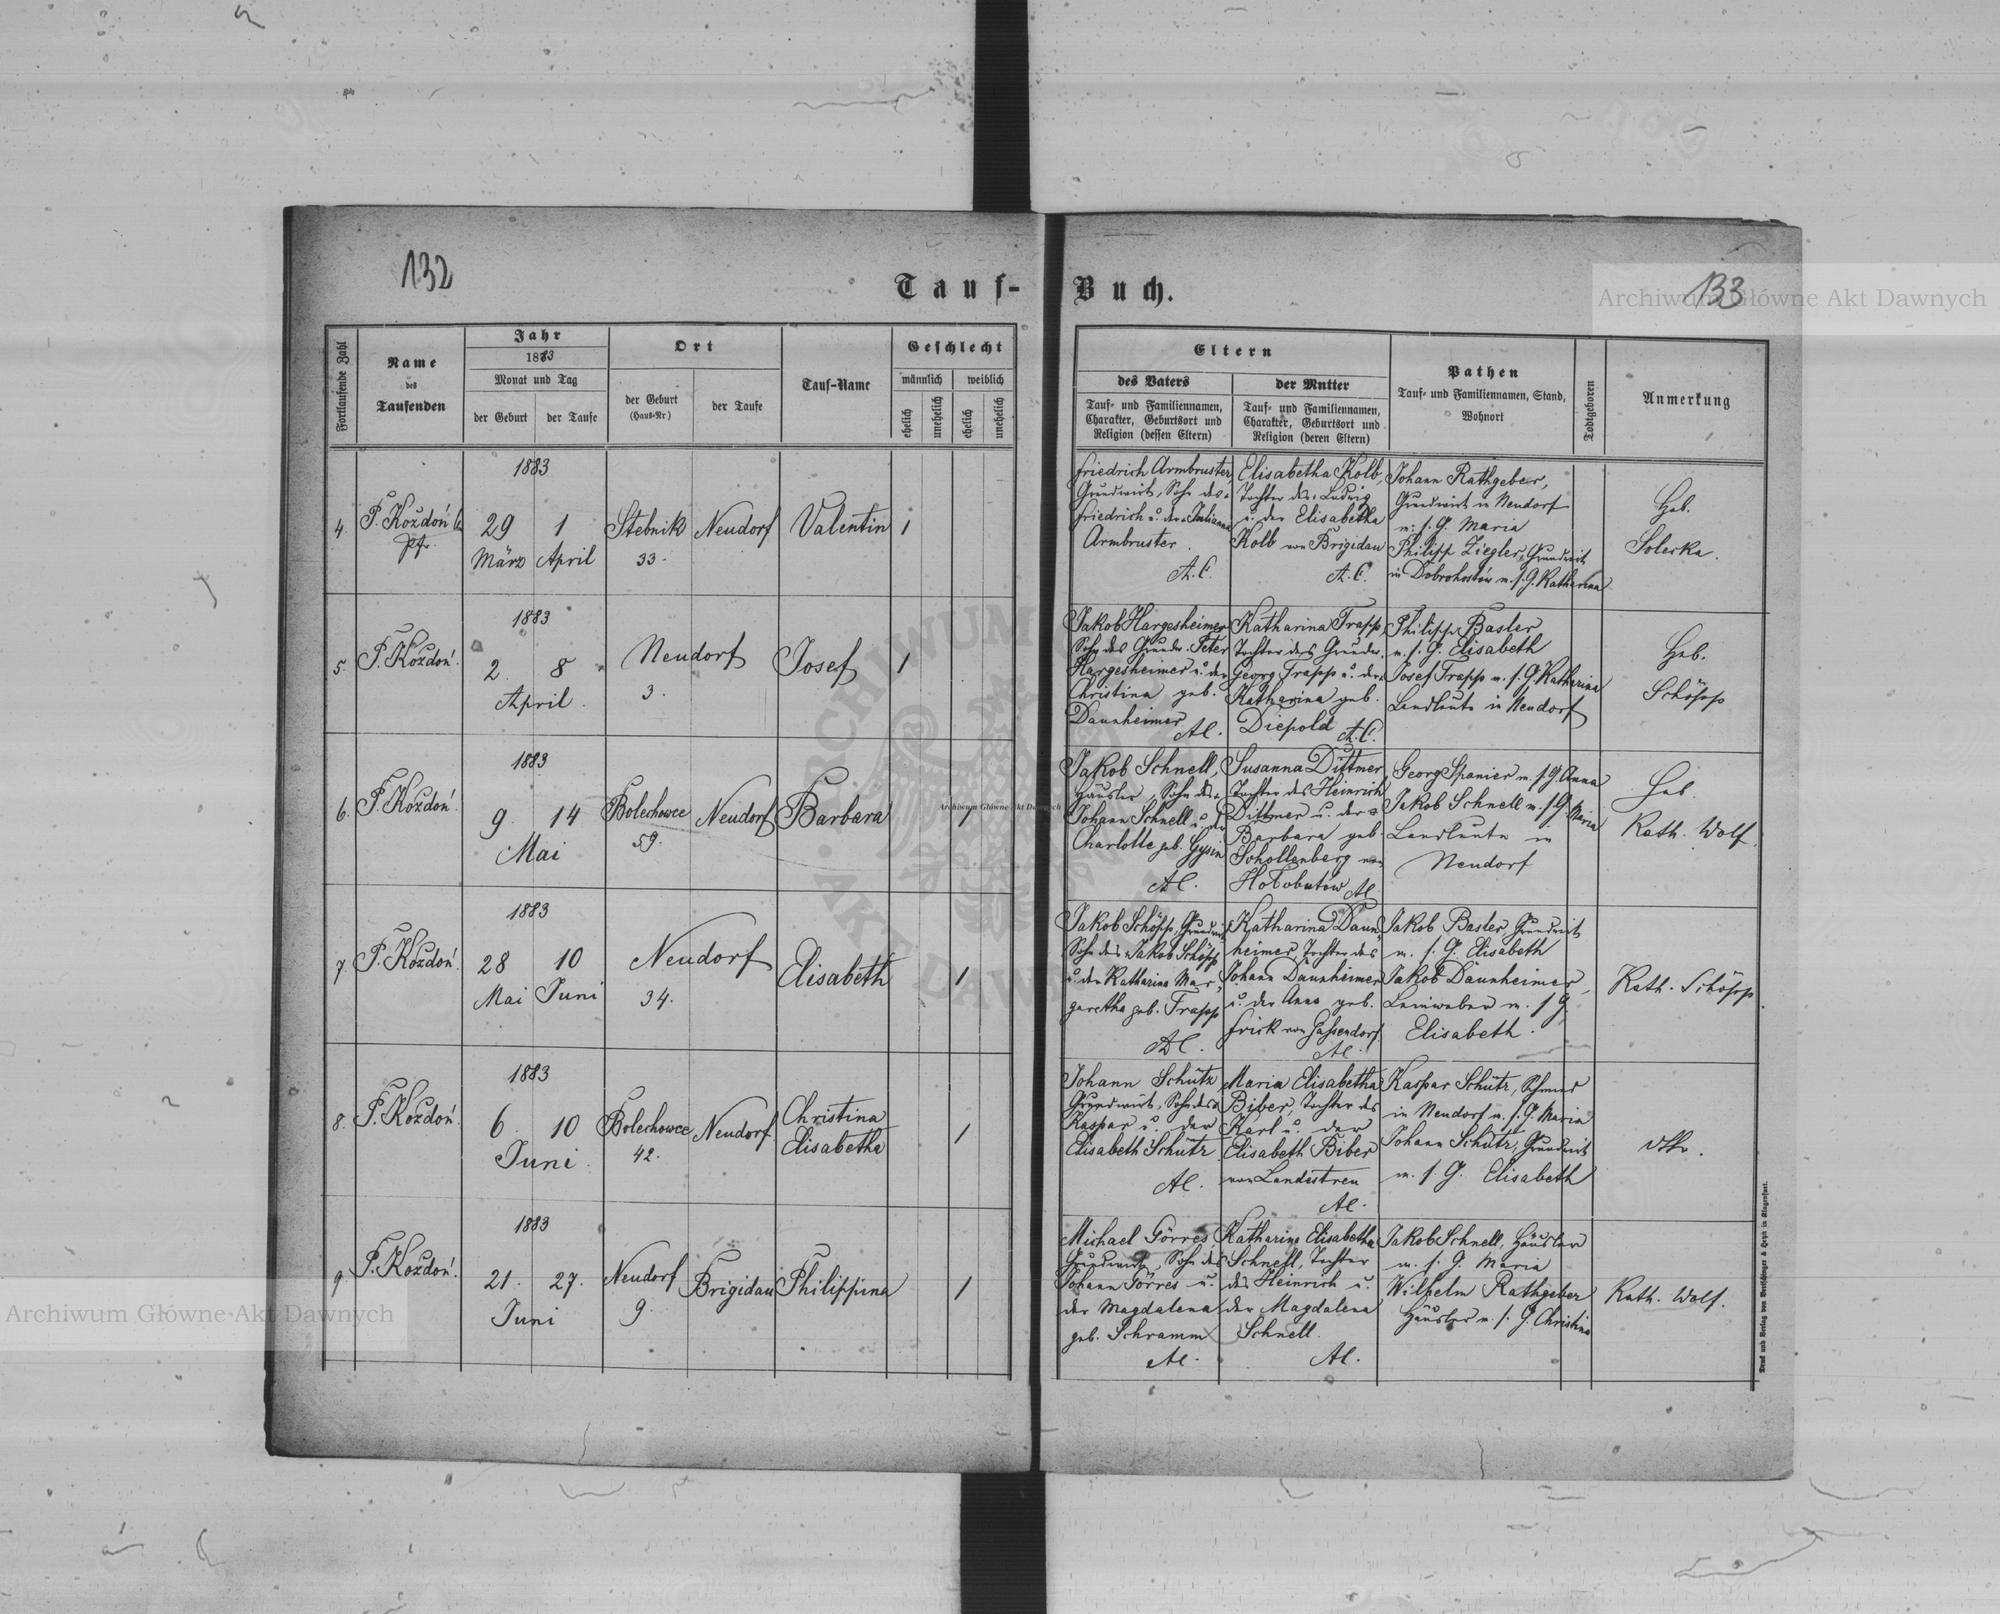 132
Tauf-
Buch.
133
Archiwum Główne Akt Dawnych
Fortlaufende Zahl
Name
des
Taufenden
Jahr
1883
Monat und Tag
der Geburt
der Taufe
Ort
der Geburt
(Haus-Nr)
der Taufe
Tauf-Name
Geschlecht
männlich
weiblich
ehelich
unehelich
ehelich
unehelich
Eltern
des Vaters
Tauf- und Familiennamen,
Charakter, Geburtsort und
Religion (dessen Eltern)
der Mutter
Tauf- und Familiennamen,
Charakter, Geburtsort und
Religion (deren Eltern)
Pathen
Tauf- und Familiennamen, Stand,
Wohnort
Todtgeboren
Anmerkung
4.
P. Kozdoń
Pfr.
1883
29
März
1
April
Stebnik
33.
Neudorf
Valentin
1
Friedrich Armbruster,
Grundwirt, Sohn des
Friedrich u. der Julianna
Armbruster
A.C.
Elisabetha Kolb,
Tochter des Ludwig
u. der Elisabetha
Kolb von Brigidau
A.C.
Johann Rathgeber,
Grundwirt in Neudorf
m. s. G. Maria
Philipp Ziegler, Grundwirt
in Dobrohostów m. s. G. Katharina
Heb.
Solecka.
5.
P. Kozdoń.
1883
2.
8
April.
Neudorf
3.
Josef
1
Jakob Hargesheimer
Sohn des Grundw. Peter
Hargesheimer u. der
Christina geb.
Daunheimer
AC.
Katharina Trapp,
Tochter des Grundw.
Georg Trapp u. der
Katharina geb.
Diepold A.C.
Philipp Basler
m. s. G. Elisabeth
Josef Trapp m. s. G. Katharina
Landleute in Neudorf
Heb.
Schöpp
6.
P. Kozdoń.
1883
9.
14
Mai
Bolechowce
59.
Neudorf
Barbara
1
Jakob Schnell,
Häusler, Sohn des
Johann Schnell u. der
Charlotte geb. Gysin
AC.
Susanna Dittmer
Tochter des Heinrich
Dittmer u. der
Barbara geb.
Schollenberg von
Hołobutów AC
Georg Spanier m. s. G. Anna
Jakob Schnell m. s. G. Maria
Landleute in
Neudorf
Heb.
Kath. Wolf.
7.
P. Kozdoń.
1883
28
Mai
10
Juni
Neudorf
34.
Elisabeth
1
Jakob Schöpp, Grundwirt
Sohn des Jakob Schöpp
u. der Katharina Mar-
garetha geb. Trapp
AC.
Katharina Daun-
heimer, Tochter des
Johann Daunheimer
u. der Anna geb.
Frick von Gassendorf
AC.
Jakob Basler, Grundwirt
m. s. G. Elisabeth
Jakob Daunheimer,
Leinweber m. s. G.
Elisabeth.
Kath. Schöpp
8.
P. Kozdoń.
1883
6
10
Juni.
Bolechowce
42.
Neudorf
Christina
Elisabetha
1
Johann Schütz
Grundwirt, Sohn des
Kaspar u. der
Elisabeth Schütz
AC.
Maria Elisabetha
Biber, Tochter des
Karl u. der
Elisabeth Biber
von Landestreu
AC.
Kaspar Schütz, Schmied
in Neudorf m. s. G. Maria
Johann Schütz, Grundwirt
m. s. G. Elisabeth
dtto.
9.
P. Kozdoń.
1883
21.
27.
Juni
Neudorf
9.
Brigidau
Philippina
1
Michael Görres
Grundwirt, Sohn des
Johann Görres u.
der Magdalena
geb. Schramm
AC.
Katharina Elisabetha
Schnell, Tochter
des Heinrich u.
der Magdalena
Schnell.
AC.
Jakob Schnell, Häusler
m. s. G. Maria
Wilhelm Rathgeber
Häusler m. s. G. Christina
Kath. Wolf.
Archiwum Główne Akt Dawnych
Archiwum Główne Akt Dawnych